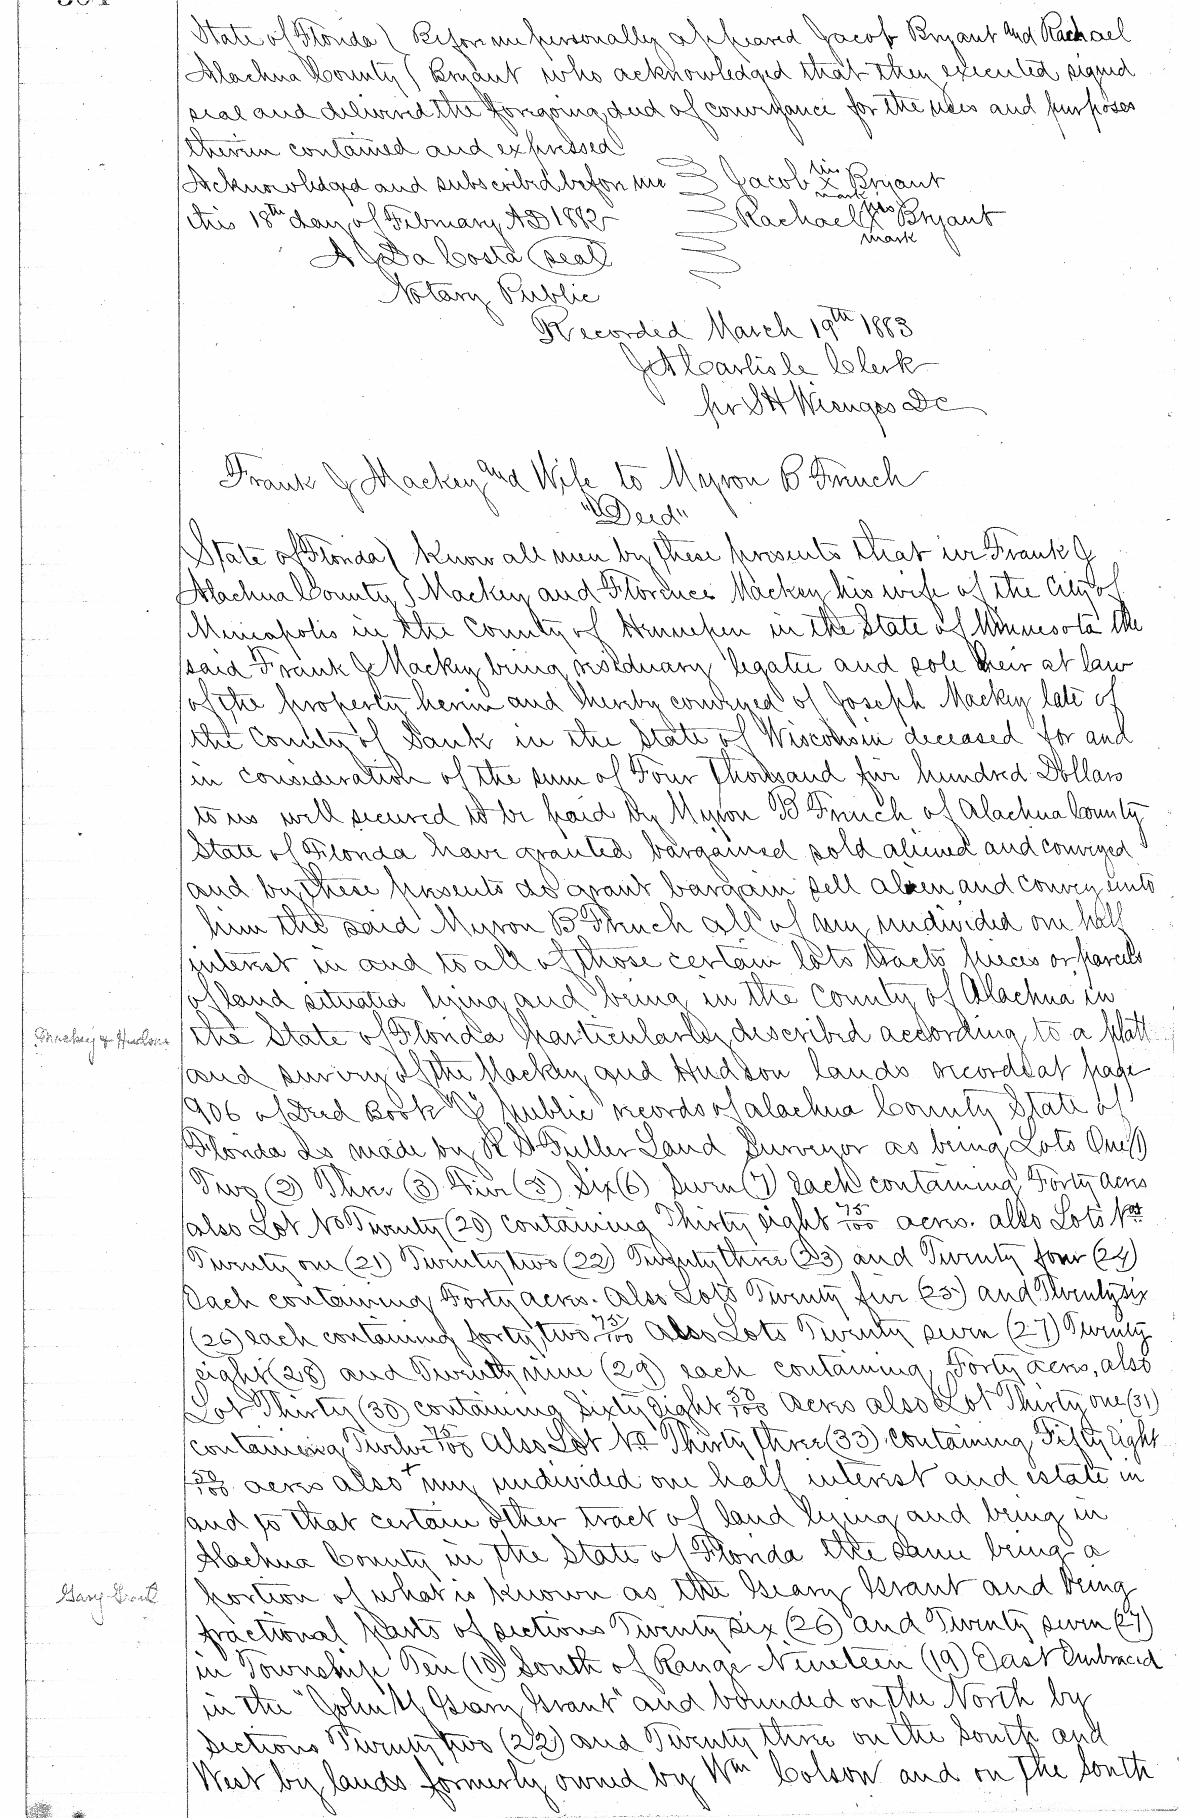 State of Florida ) Before me personally appeared Jacob Bryant and Rachael
Alachua County ( Bryant who acknowledged that they executed signed
seal and delivered the foregoing deed of conveyance for the uses and purposes
therein contained and expressed
Acknowledged and subscribed before me Jacob his x mark Bryant
this 18th day of February AD 1882 Rachael his x mark Bryant
A J Da Costa (seal)
Notary Public
Recorded March 19th 1883
J A Carlisle Clerk
per S H Wienges DC
Frank J Mackey and Wife to Myron B French
"Deed"
State of Florida ) Know all men by these presents that we Frank J
Alachua County ) Mackey and Florence Mackey his wife of the City of
Mineapolis in the County of Hennepen in the State of Minnesota the
said Frank J Mackey being residuary legatee and sole heir at law
of the property herein and hereby conveyed of Joseph Mackey late of
the County of Sauk in the State of Wisconsin deceased for and
in consideration of the sum of Four Thousand five hundred Dollars
to us well secured to be paid by Myron B French of Alachua County
State of Florida have granted bargained sold aliened and conveyed
and by these presents do grant bargain sell alien and convey unto
him the said Myron B French all of my undivided one half
interest in and to all of those certain lots tracts pieces or parcels
of land situated lying and being in the County of Alachua in
Mackey & Hudson
the State of Florida particularly described according to a platt
and survey of the Mackey and Hudson lands records at page
906 of Deed Book public records of Alachua County State of
Florida as made by R Fuller Land Surveyor as being Lots One (1)
Two (2) Three (3) Five (5) Six (6) Seven (7) each containing Forty acres
also Lot No Twenty (20) containing Thirty eight 75/100 acres. also Lots Nos
Twenty one (21) Twenty two (22) Twenty three (23) and Twenty four (24)
Each containing Forty acres. Also Lots Twenty five (25) and Twenty six
(26) each containing forty two 75/100 Also Lots Twenty seven (27) Twenty
eight (28) and Twenty nine (29) each containing Forty acres, also
Lot Thirty (30) containing Sixty Eight 50/100 acres also Lot Thirty one (31)
containing Twelve 75/100 Also Lot No Thirty three (33) containing Fifty Eight
50/100 acres also my undivided one half interest and estate in
and to that certain other tract of land lying and being in
Alachua County in the State of Florida the same being a
Gary Grant
portion of what is known as the Geary Grant and being
fractional parts of sections Twenty six (26) and Twenty seven (27)
in Township Ten (10) South of Range Nineteen (19) East Embraced
in the "John Geary Grant" and bounded on the North by
sections Twenty two (22) and Twenty three on the South and
West by lands formerly owned by Wm Colson and on the South